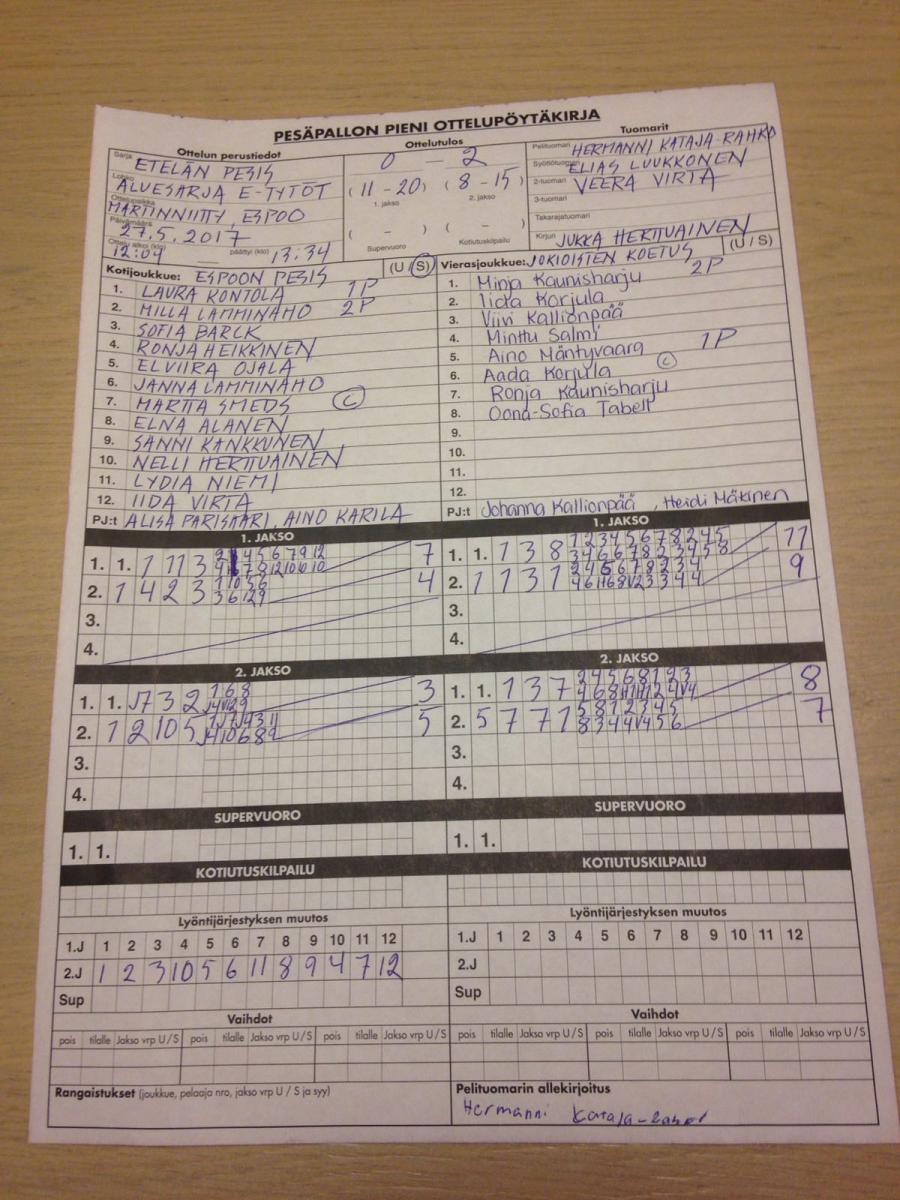 PESÄPALLON PIENI OTTELUPÖYTÄKIRJA
Ottelun perustiedot
Sarja ETELÄN PESIS
Lohko ALUESARJA E-TYTÖT
Ottelupaikka MARTINNIITTY, ESPOO
Päivämäärä 27.5.2017
Ottelu alkoi (klo) 12:04 — päättyi (klo) 13:34
Ottelutulos
0 – 2
(11 - 20) (8 - 15)
1. jakso 2. jakso
( - ) ( - )
Supervuoro Kotiutuskilpailu
Tuomarit
Pelituomari HERMANNI KATAJA-RAHKO
Syöttötuomari ELIAS LUUKKONEN
2-tuomari VEERA VIRTA
3-tuomari
Takarajatuomari
Kirjuri JUKKA HERTTUAINEN
Kotijoukkue: ESPOON PESIS (U / S)
1. LAURA KONTOLA 1P
2. MILLA LAMMINAHO 2P
3. SOFIA BARCK
4. RONJA HEIKKINEN
5. ELVIIRA OJALA
6. JANNA LAMMINAHO
7. MARTTA SMEDS C
8. ELNA ALANEN
9. SANNI KANKKUNEN
10. NELLI HERTTUAINEN
11. LYDIA NIEMI
12. IIDA VIRTA
PJ:t ALISA PARISAARI, AINO KARILA
Vierasjoukkue: JOKIOISTEN KOETUS (U / S)
1. Minja Kaunisharju 2P
2. Iida Korjula
3. Viivi Kallionpää
4. Minttu Salmi
5. Aino Mäntyvaara 1P
6. Aada Korjula C
7. Ronja Kaunisharju
8. Oona-Sofia Tabell
9.
10.
11.
12.
PJ:t Johanna Kallionpää, Heidi Mäkinen
1. JAKSO
1. 1. 1 11 3 7
2. 1 4 2 3 4
3.
4.
1. JAKSO
1. 1. 1 3 8 11
2. 1 1 3 1 9
3.
4.
2. JAKSO
1. 1. J7 3 2 3
2. 1 2 10 5 5
3.
4.
2. JAKSO
1. 1. 1 3 7 8
2. 5 7 7 1 7
3.
4.
SUPERVUORO
1. 1.
SUPERVUORO
1. 1.
KOTIUTUSKILPAILU
KOTIUTUSKILPAILU
Lyöntijärjestyksen muutos
1.J 1 2 3 4 5 6 7 8 9 10 11 12
2.J 1 2 3 10 5 6 11 8 9 4 7 12
Sup
Lyöntijärjestyksen muutos
1.J 1 2 3 4 5 6 7 8 9 10 11 12
2.J
Sup
Vaihdot
pois tilalle Jakso vrp U / S pois tilalle Jakso vrp U / S pois tilalle Jakso vrp U / S
Vaihdot
pois tilalle Jakso vrp U / S pois tilalle Jakso vrp U / S pois tilalle Jakso vrp U / S
Rangaistukset (joukkue, pelaaja nro, jakso vrp U / S ja syy)
Pelituomarin allekirjoitus
Hermanni Kataja-Rahko